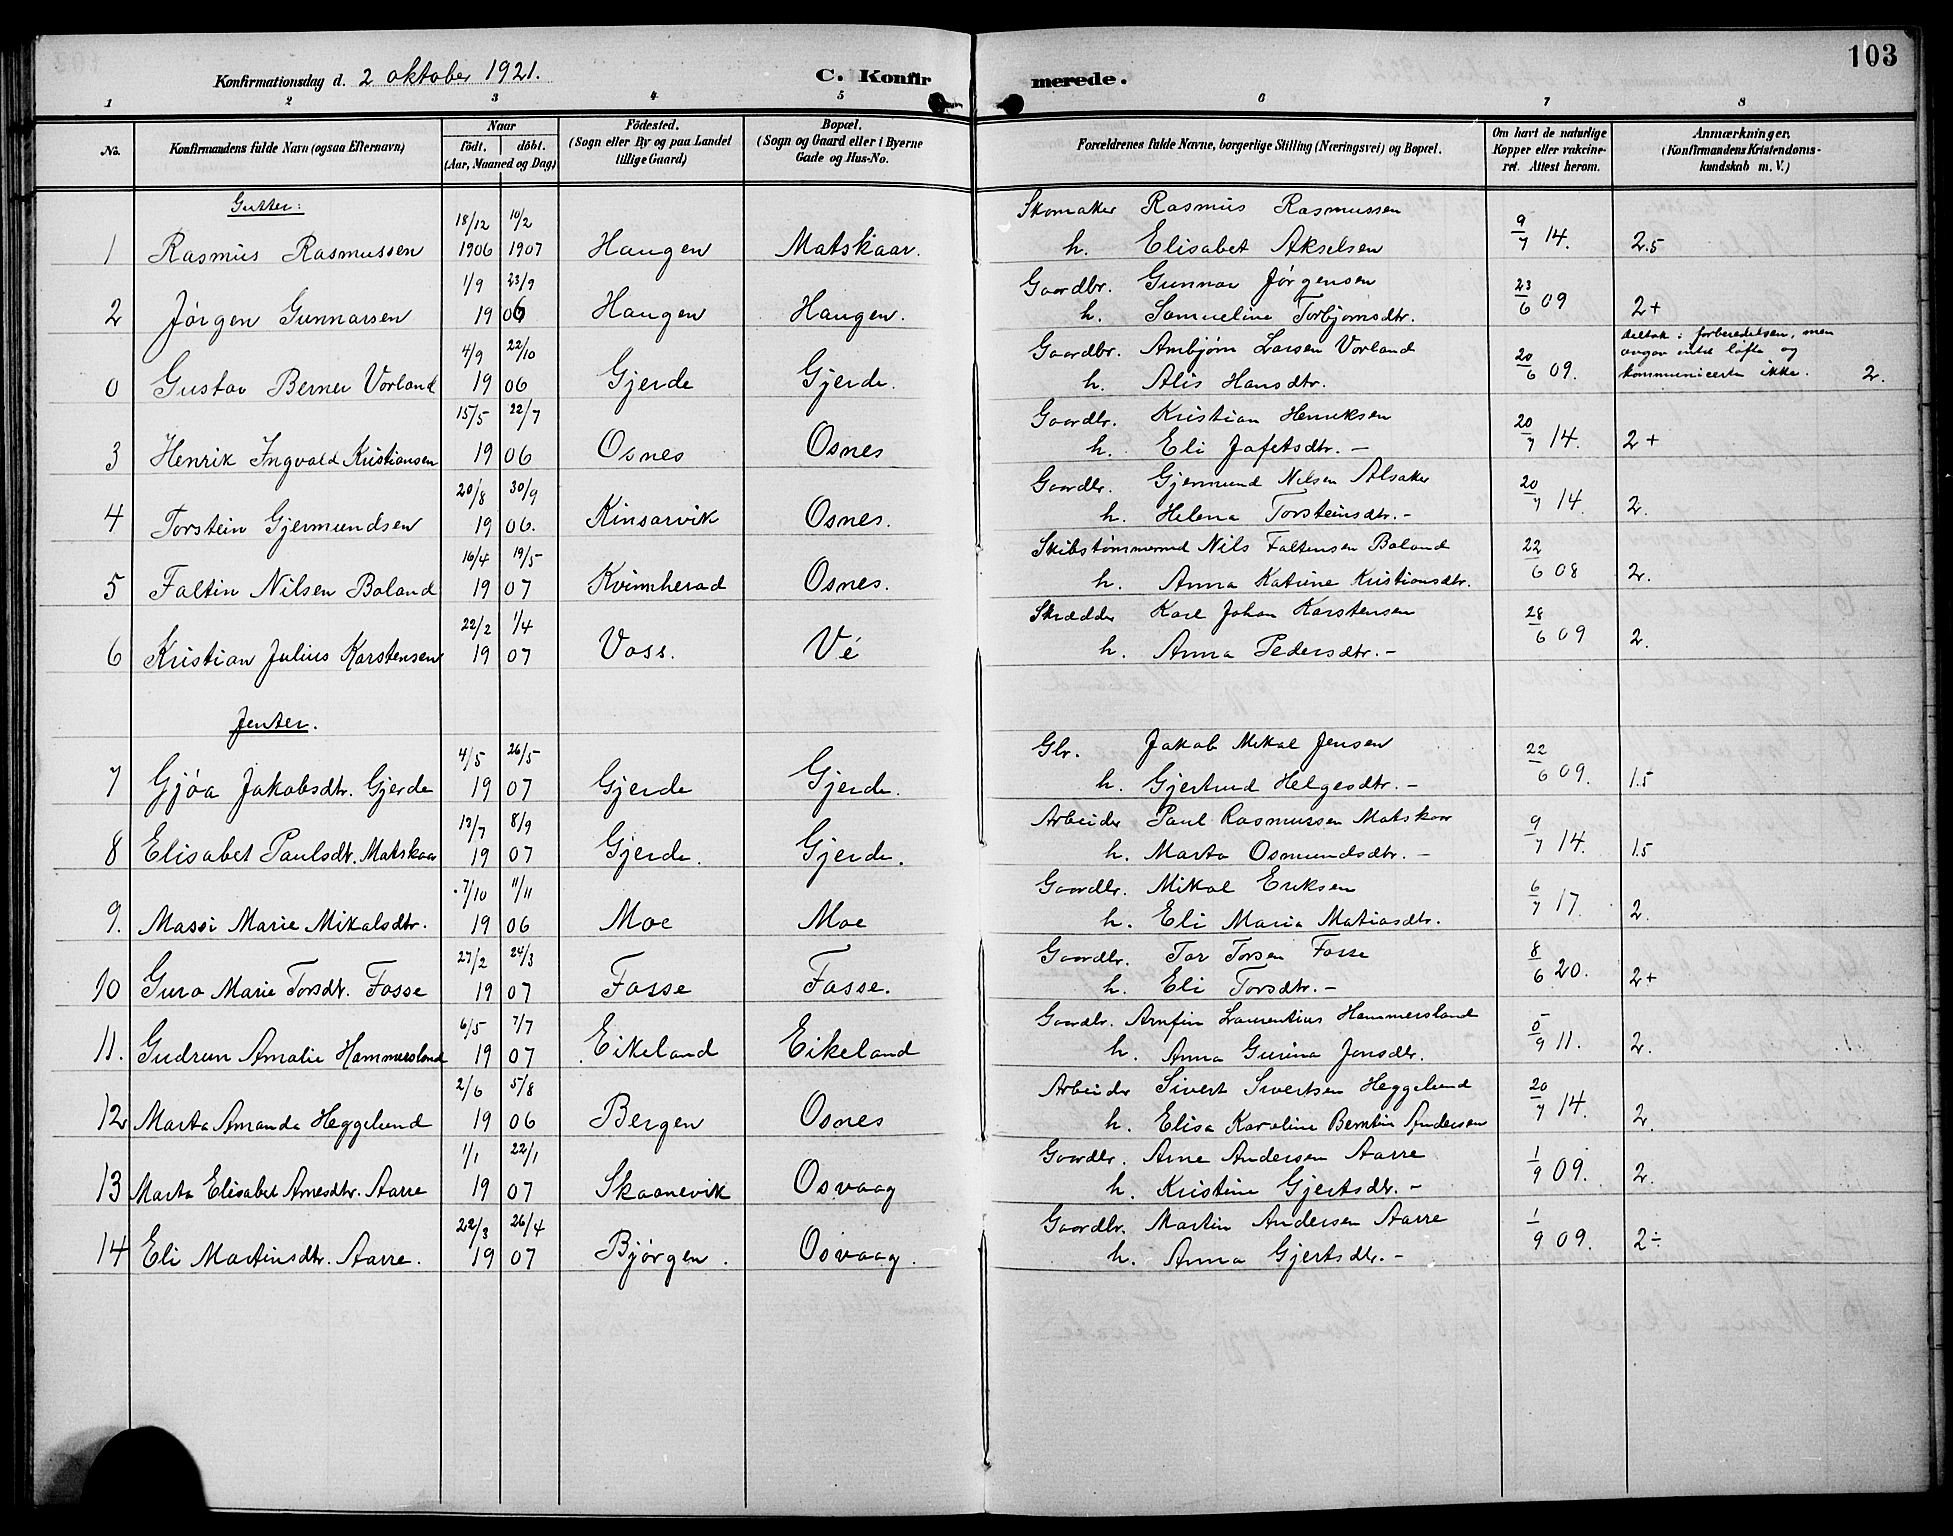 103
Konfirmationsdag d. 2 oktober 1921. C. Konfirmerede.
1 2 3 4 5 6 7 8
No. Konfirmandens fulde Navn (ogsaa Efternavn) Naar født. døbt. (Aar, Maaned og Dag) Fødested. (Sogn eller By og paa Landet tillige Gaard) Bopæl. (Sogn og Gaard eller i Byerne Gade og Hus-No. Forældrenes fulde Navne, borgerlige Stilling (Næringsvei) og Bopæl. Om havt de naturlige Kopper eller vakcineret. Attest herom. Anmærkninger, (Konfirmandens Kristendomskundskab m. V.)
Gutter:
18/12 10/2 Skomaker Rasmus Rasmussen
1 Rasmus Rasmussen 1906 1907 Haugen Matskaar. h. Elisabet Akselsen 9/7 14. 2.5
1/9 23/9 Gaardbr. Gunnar Jørgensen
2 Jørgen Gunnarsen 19 06 Haugen Haugen. h. Samueline Torbjørnsdtr. 23/6 09 2+
4/9 22/10 Gaardbr. Arnbjørn Larsen Vorland deltok i forberedelsen, men
avgav intet løfte og
0 Gustav Berner Vorland 19 06 Gjerde Gjerde. h. Alis Hansdtr. 20/6 09. kommunicerte ikke. 2.
15/5 22/7 Gaardbr. Kristian Henriksen
3 Henrik Ingvald Kristiansen 19 06 Osnes Osnes h. Eli Jafetsdtr. - 20/7 14. 2+
20/8 30/9 Gaardbr. Gjermund Nilsen Alsaker
4 Torstein Gjermundsen 19 06. Kinsarvik Osnes. h. Helena Torsteinsdtr. - 20/7 14. 2.
16/4 19/5 Skibstømmermd Nils Faltensen Boland
5 Faltin Nilsen Boland 19 07 Kvinnherad Osnes. h. Anna Katrine Kristiansdtr. 22/6 08 2.
22/2 1/4 Skrædder Karl Johan Karstensen
6 Kristian Julius Karstensen 19 07 Voss. Vé h. Anna Pedersdtr. - 28/6 09 2.
Jenter.
4/5 26/5 Gbr. Jakob Mikal Jensen
7 Gjøa Jakobsdtr. Gjerde 19 07 Gjerde Gjerde. h. Gjertrud Helgesdtr. - 22/6 09. 1.5
13/7 8/9 Arbeider Paul Rasmussen Matskaar
8 Elisabet Paulsdt. Matskaar 19 07 Gjerde. Gjerde. h. Marta Osmundsdtr. - 9/7 14. 1.5
7/10 11/11 Gaardbr. Mikal Eriksen
9. Massi Marie Mikalsdtr. 19 06 Moe Moe h. Eli Maria Matiasdtr. 6/7 17. 2.
27/2 24/3 Gaardbr. Tor Torsen Fosse
10 Guro Marie Torsdt. Fosse 19 07 Fosse Fosse. h. Eli Torsdtr. - 8/6 20. 2+
6/5 7/7 Gaardbr. Arnfin Laurentius Hammersland
11. Gudrun Amalie Hammersland 19 07 Eikeland Eikeland h. Anna Gurina Jonsdtr. 5/9 11. 2.
2/6 5/8 Arbeider Sivert Sivertsen Heggelund
12 Marta Amanda Heggelund 19 06 Bergen Osnes h. Elisa Karoline Berntin Andersen 20/7 14. 2.
1/1 22/1 Gaardbr. Arne Andersen Aarre
13 Marta Elisabet Arnesdtr. Aarre 19 07 Skaanevik Osvaag h. Kristine Gjertsdtr. - 1/9 09. 2.
22/3 26/4 Gaardbr. Martin Andersen Aarre
14 Eli Martinsdtr. Aarre. 19 07 Bjørgen. Osvaag. h. Anna Gjertsdtr. - 1/9 09. 2÷